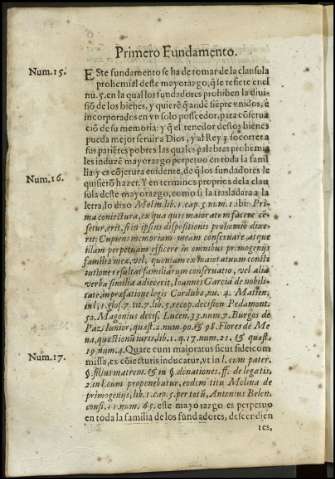 Primero Fundamento.
Num. 15.
ESte fundamento se ha de tomar de la clausula
prohemial deste mayorazgo, q̃ se refiere en el
nu. 5. en la qual los fundadores prohiben la diui-
siõ de los bienes, y quierẽ q̃ andẽ siẽpre vnidos, è
incorporados en vn solo posseedor, para cõserua-
ciõ de su memoria: y q̃ el tenedor destos bienes
pueda mejor seruir a Dios, y al Rey, y socorrer a
sus pariẽtes pobres las quales palabras prohemia
les induzẽ mayorazgo perpetuo en toda la fami-
lia y es cõjetura euidente, de q̃ los fundadores le
Num. 16.
quisierõ hazer. Y en terminos proprios de la clau
sula deste mayorazgo, como si la trasladara a la
letra, lo dixo Molin. lib. 1. cap. 5. num. 1. ibi: Pri-
ma coniectura, ex qua quis maioratum facere cẽ-
setur, erit, si in ipsius dispositionis prohemio dixe-
rit: Cupiens memoriam meam conseruare atque
illam perpetuam efficere in omnibus primogenijs
familiæ meæ, vel, quoniam ex maioratuum consti
tutione resultat familiarum conseruatio, vel alia
verba similia adiecerit, Ioannis Garcia de nobili-
tate, in præfatione legis Cordubæ, nu. 4. Matien.
in l. 1. glos. 7. tit. 7. lib. 5. recop. decision. Pedamont.
5. Magonius decis. Lucen. 33. num. 7. Burgos de
Paz, Iunior, quæst. 2. num. 90. & 98. Flores de Me
na, quæstionũ variis, lib. 1. q. 17. num. 21. & quæst.
19. num. 4. Quare cum maioratus sicut fideicom
Num. 17.
missa, ex cõiecturis inducatur, vt in l. cum pater,
§. filius matrem. & in §. donationis. ff. de legatis,
2. in l. cum proponebatur, eodem titu Molina de
primogenijs, lib. 1. cap. 5. per totũ, Antonius Belon.
consi. 11. num. 65. este mayorazgo es perpetuo
en toda la familia de los fundadores, descendien
tes,